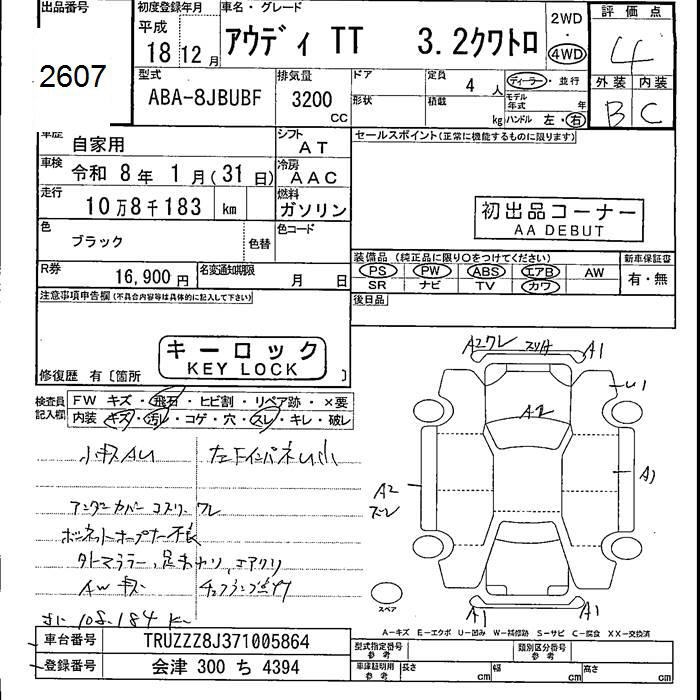 出品番号
2607
初度登録年月
平成
18年12月
車名・グレード
アウディ TT 3.2クワトロ
2WD
・
4WD
評価点
4
外装 内装
B C
型式
ABA-8JBUBF
排気量
3200 CC
ドア
形状
定員 4 人
積載 kg
ディーラー・並行
モデル年式 年
ハンドル 左・右
車歴 自家用
シフト AT
車検 令和 8年 1月(31日)
冷房 AAC
走行 10万8千183 km
燃料 ガソリン
色 ブラック
色替
色コード
R券 16,900円
名変通知期限 月 日
セールスポイント(正常に機能するものに限ります)
初出品コーナー
AA DEBUT
装備品 (純正品に限り○をつけてください)
PS PW ABS エアB AW
SR ナビ TV カワ
新車保証書
有・無
後日品
注意事項申告欄(不具合内容等は具体的に記入して下さい)
キーロック
KEY LOCK
修復歴 有〔箇所 〕
検査員記入欄
FW キズ・飛石・ヒビ割・リペア跡・×要
内装 キズ・汚レ・コゲ・穴・スレ・キレ・破レ
小キズAU 左下インパネU小
アンダーカバー コスリ ワレ
ボンネットオープナー不良
AW キズ チェックランプ点灯
108.184 K
A2ワレ
A1
U1
A2
A1
A2
ズレ
A1
A1
スペア
A-キズ E-エクボ U-凹み W-補修跡 S-サビ C-腐食 XX-交換済
車台番号 TRUZZZ8J371005864
登録番号 会津 300 ち 4394
型式指定番号 参考
類別区分番号 参考
車庫証明用 参考 長さ cm 幅 cm 高さ cm